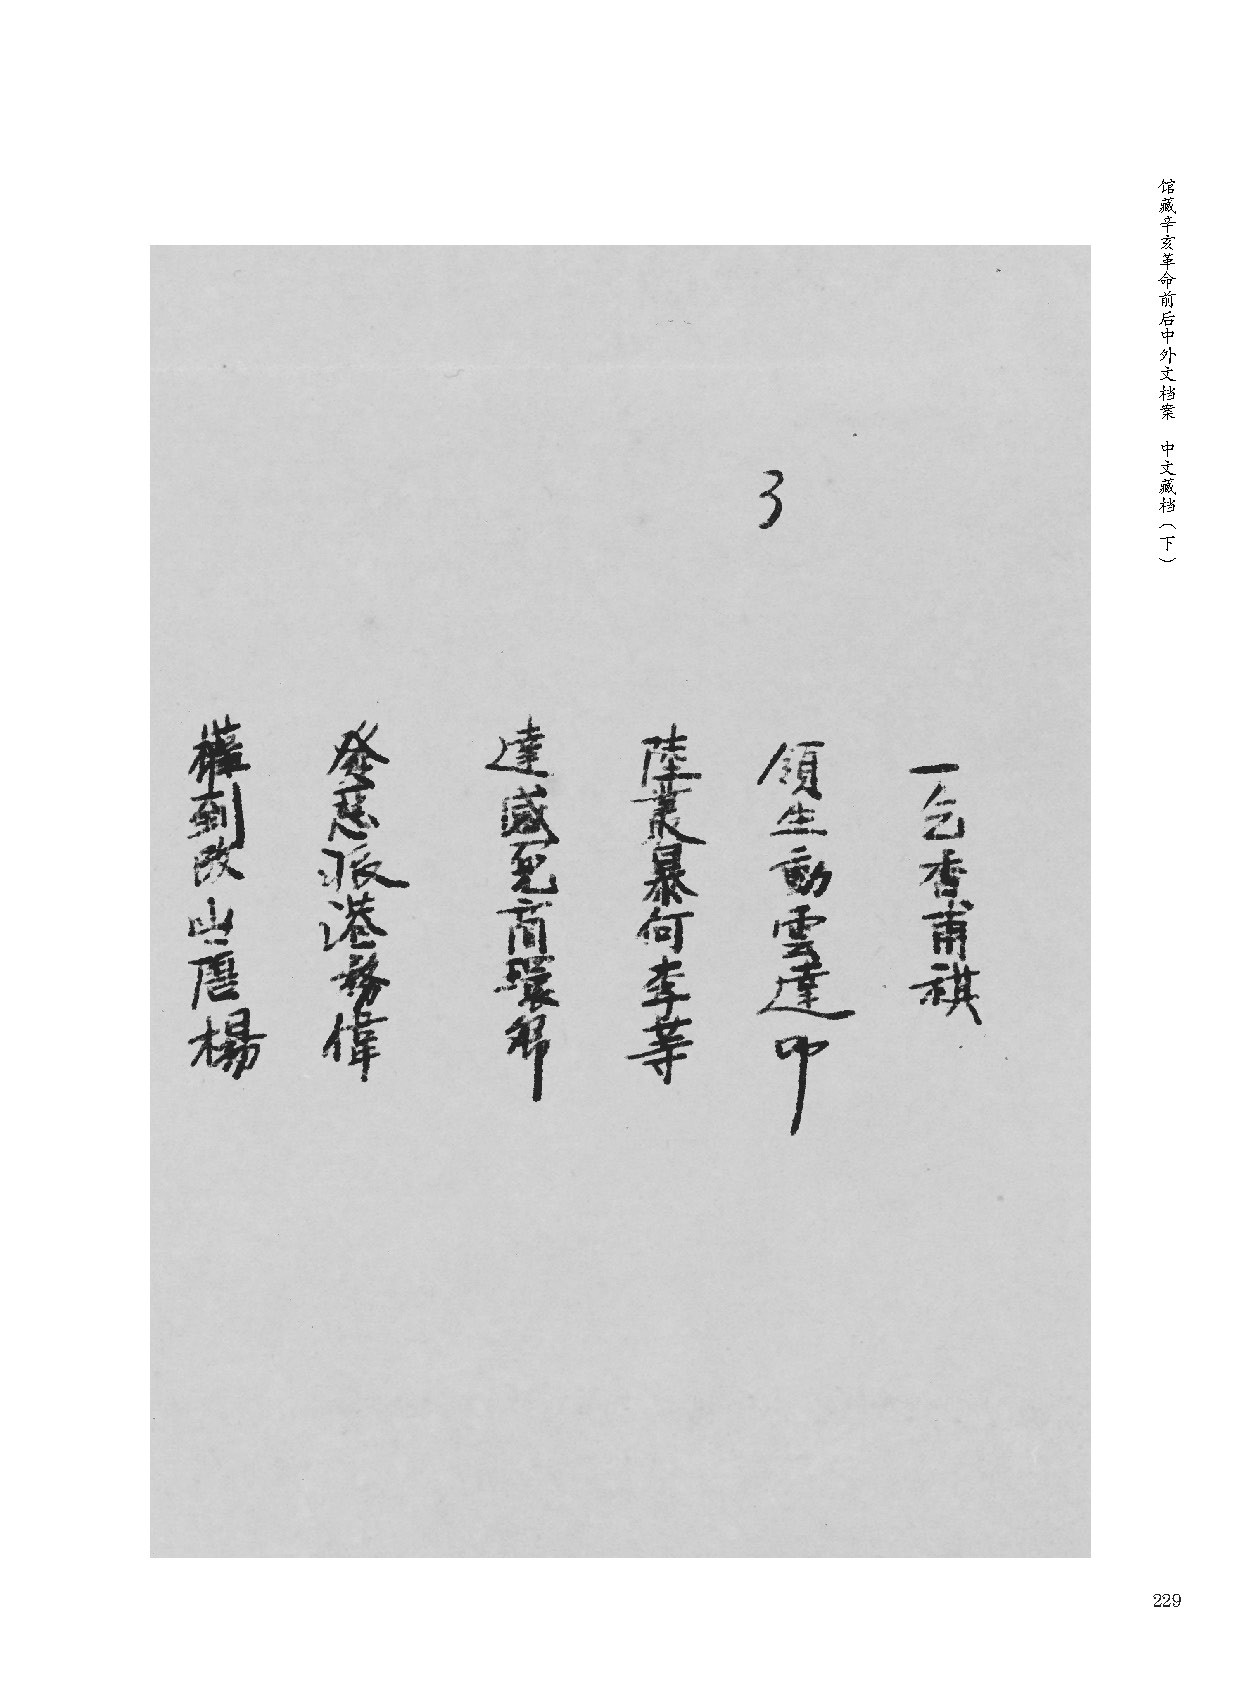 馆藏辛亥革命前后中外文档案 中文藏档（下）
3
一乞香甫祺
領生動雲達叩
陸叢暴何李等
達感冤商環解
發慈派港務偉
權到改山唐楊
229